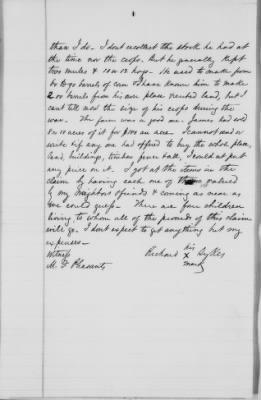 than I do - I dont recollect the stock he had at
the time nor the crops. But he generally kept
two mules & 10 or 12 hogs. He used to make from
60 to 90 barrels of corn & I have known him to make
200 barrels from his own place & rented land, but I
cant tell now the size of his crops during the
war. The farm was a good one. James had sold
8 or 10 acres of it for $100 an acre. I cannot read or
write & if any one had offered to buy the whole place,
land, buildings, timber fence & all, I could not put
any price on it. I got at the items in the
claim by having each one of them valued
by my neighbors & friends & coming as near as
we could guess - There are four children
living to whom all of the proceeds of this claim
will go. I don't expect to get anything but my
expenses -
his
Witness Richard X Sykes
M. F. Pleasants mark